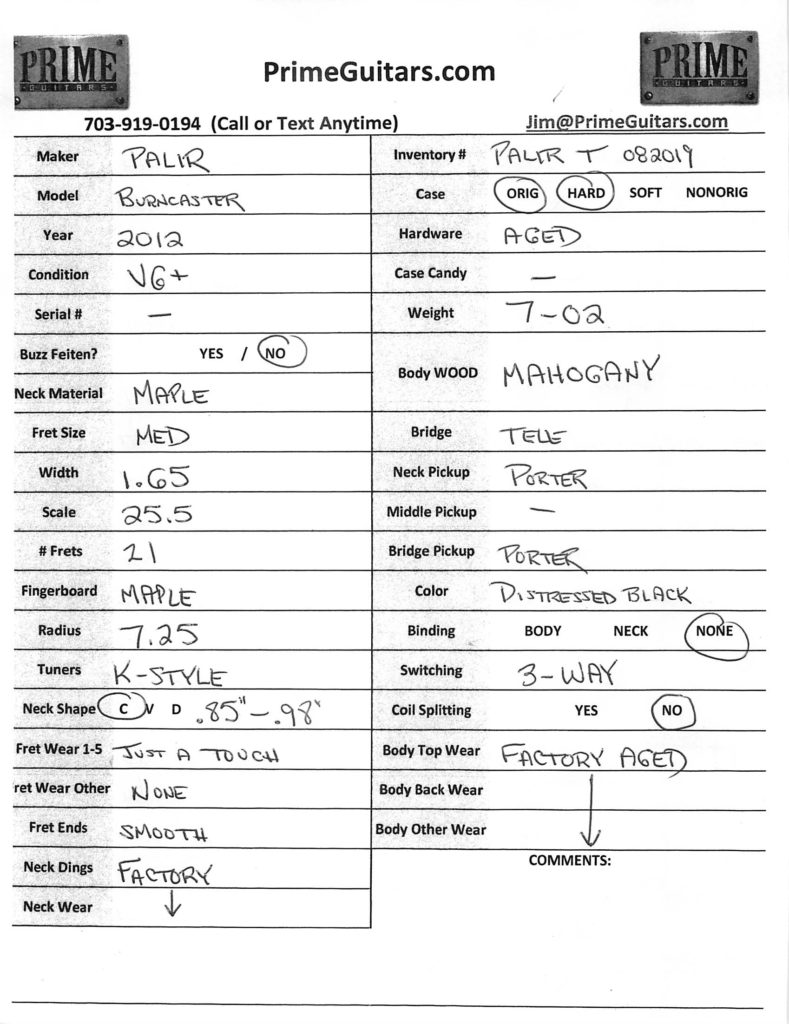 PRIME
GUITARS
PrimeGuitars.com
PRIME
GUITARS
703-919-0194 (Call or Text Anytime)
Jim@PrimeGuitars.com
Maker PALIR
Inventory # PALIR T 082019
Model BURNCASTER
Case ORIG HARD SOFT NONORIG
Year 2012
Hardware AGED
Condition VG+
Case Candy —
Serial # —
Weight 7-02
Buzz Feiten? YES / NO
Body WOOD MAHOGANY
Neck Material MAPLE
Fret Size MED
Bridge TELE
Width 1.65
Neck Pickup PORTER
Scale 25.5
Middle Pickup —
# Frets 21
Bridge Pickup PORTER
Fingerboard MAPLE
Color DISTRESSED BLACK
Radius 7.25
Binding BODY NECK NONE
Tuners K-STYLE
Switching 3-WAY
Neck Shape C V D .85"-.98"
Coil Splitting YES NO
Fret Wear 1-5 JUST A TOUCH
Body Top Wear FACTORY AGED
ret Wear Other NONE
Body Back Wear
Fret Ends SMOOTH
Body Other Wear ↓
Neck Dings FACTORY
COMMENTS:
Neck Wear ↓